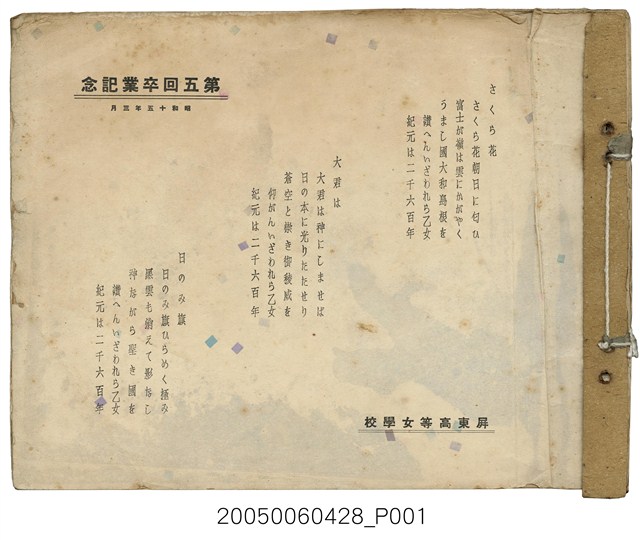 念記業卒回五第
月三年五十和昭
さくら花
さくら花朝日に匂ひ
富士が嶺は雲にかがやく
うまし國大和島根を
讃へんいざわれら乙女
紀元は二千六百年
大君は
大君は神にしませば
日の本に光りたたせり
蒼空と嚴き御稜威を
仰がんいざわれら乙女
紀元は二千六百年
日のみ旗
日のみ旗ひらめく極み
黑雲も消えて影なし
神ながら聖き國を
讃へんいざわれら乙女
紀元は二千六百年
校學女等高東屏
20050060428_P001